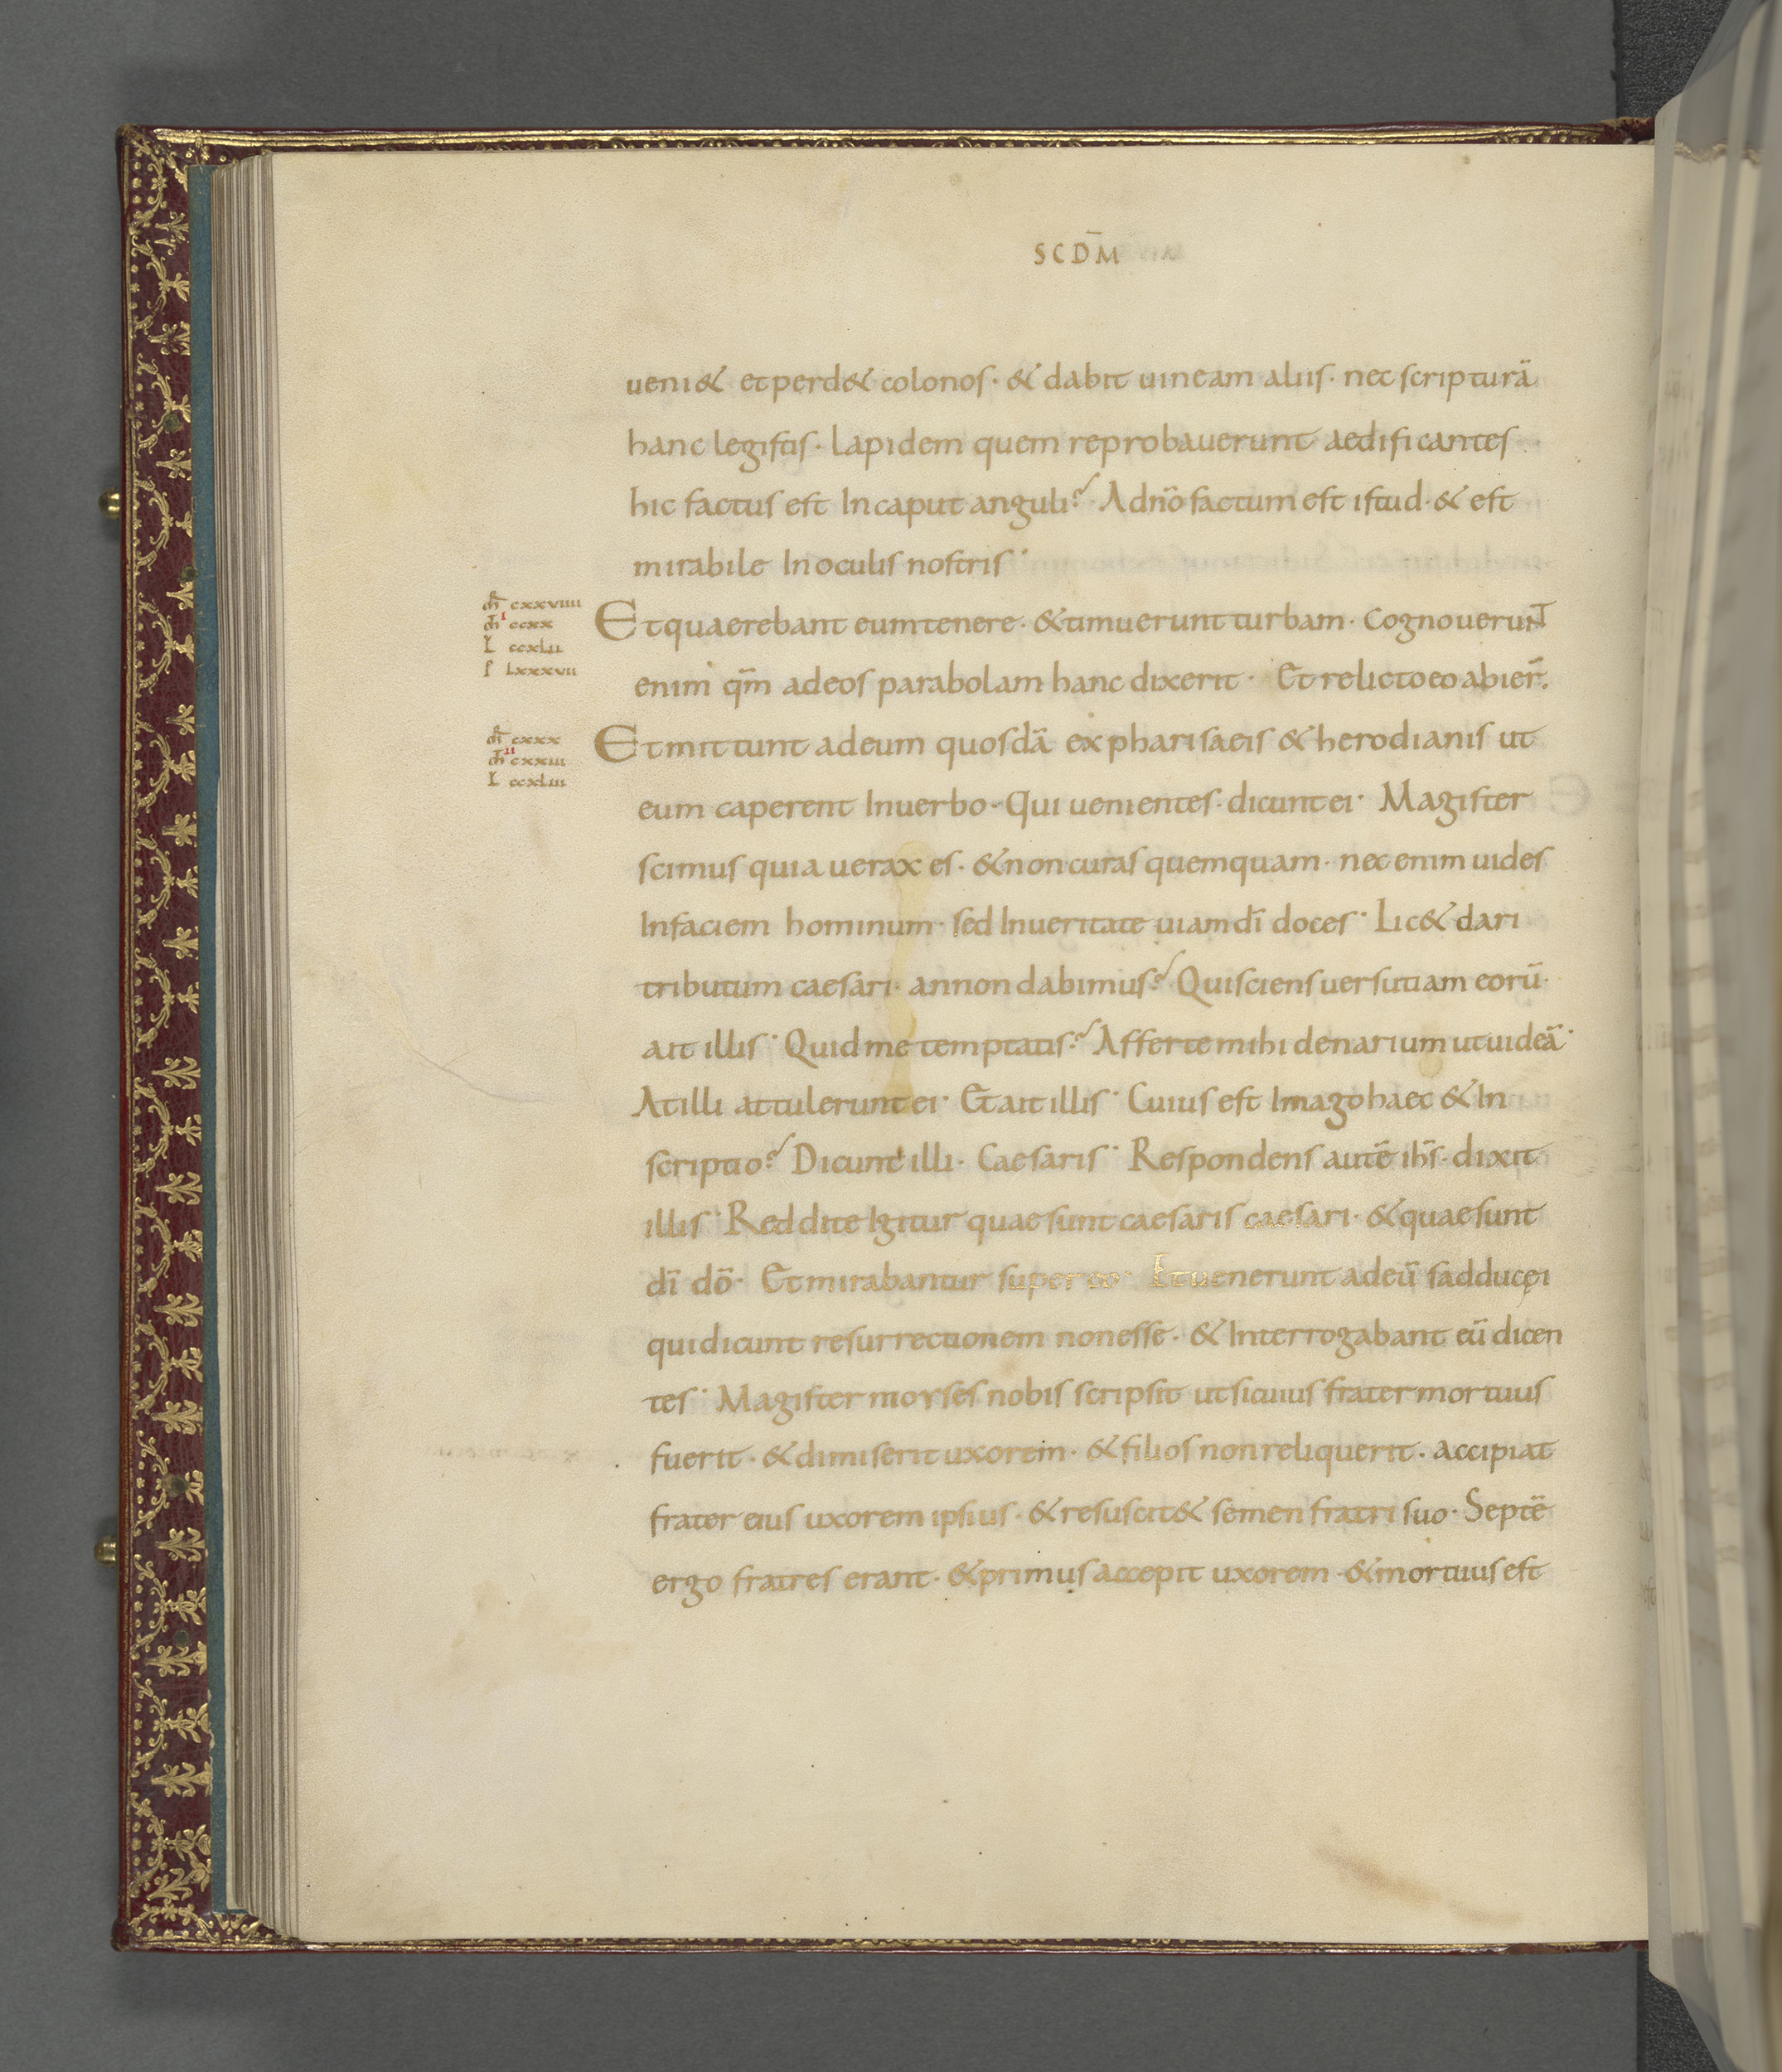 SCDM̄
ueni& et perd& colonos · & dabit uineam aliis · nec scripturā
hanc legistis · Lapidem quem reprobauerunt aedificantes
hic factus est In caput anguli? A dn̄o factum est istud · & est
mirabile In oculis nostris ·
m̄r cxxviiii
m̄t ccxx
l ccxlii
Et quaerebant eum tenere · & timuerunt turbam · Cognouerunt
i
l lxxxvii
enim qm̄ ad eos parabolam hanc dixerit · Et relicto eo abier̄.
m̄r cxxx
Et mittunt ad eum quosdā ex pharisaeis & herodianis ut
ii
m̄t cxxiii
l ccxliii
eum caperent In uerbo · Qui uenientes · dicunt ei · Magister
scimus quia uerax es · & non curas quemquam · nec enim uides
In faciem hominum · sed In ueritate uiam dī doces · Lic& dari
tributum caesari · an non dabimus? Qui sciens uersutiam eorū ·
ait illis · Quid me temptatis? Afferte mihi denarium ut uideā ·
At illi attulerunt ei · Et ait illis · Cuius est Imago haec & In
scriptio? Dicunt illi · Caesaris · Respondens autē ih̄s · dixit
illis · Reddite Igitur quae sunt caesaris caesari · & quae sunt
dī dō · Et mirabantur super eo · Et uenerunt ad eū sadducęi
qui dicunt resurrectionem non esse · & Interrogabant eū dicen
tes · Magister moyses nobis scripsit ut si cuius frater mortuus
fuerit · & dimiserit uxorem · & filios non reliquerit · accipiat
frater eius uxorem ipsius · & resuscit& semen fratri suo · Septē
ergo fratres erant · & primus accepit uxorem · & mortuus est